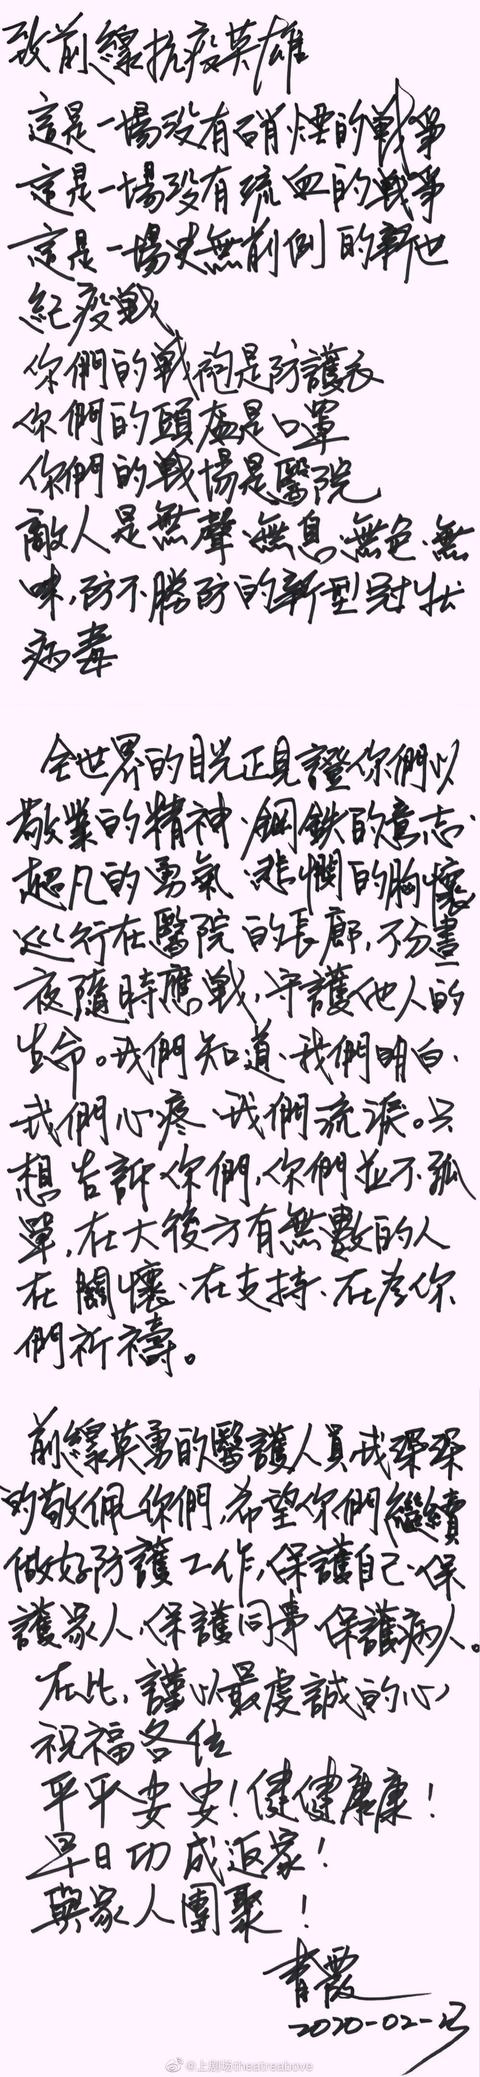 致前線抗疫英雄
這是一場没有硝煙的戰爭
這是一場没有流血的戰爭
這是一場史無前例的新世
紀疫戰
你們的戰袍是防護衣
你們的頭盔是口罩
你們的戰場是醫院
敵人是無聲、無息、無色、無
味，防不勝防的新型冠狀
病毒
全世界的目光正見證你們以
敬業的精神、鋼鐵的意志、
超凡的勇氣、悲憫的胸懷
巡行在醫院的長廊，不分晝
夜隨時應戰，守護他人的
生命。我們知道、我們明白、
我們心疼、我們流淚。只
想告訴你們，你們並不孤
單，在大後方有無數的人
在關懷、在支持、在為你
們祈禱。
前線英勇的醫護人員，我深深
的敬佩你們，希望你們繼續
做好防護工作，保護自己、保
護家人、保護同事、保護病人。
在此，謹以最虔誠的心
祝福各位
平平安安！健健康康！
早日功成返家！
與家人團聚！
青霞
2020-02-
@上剧场theatreabove